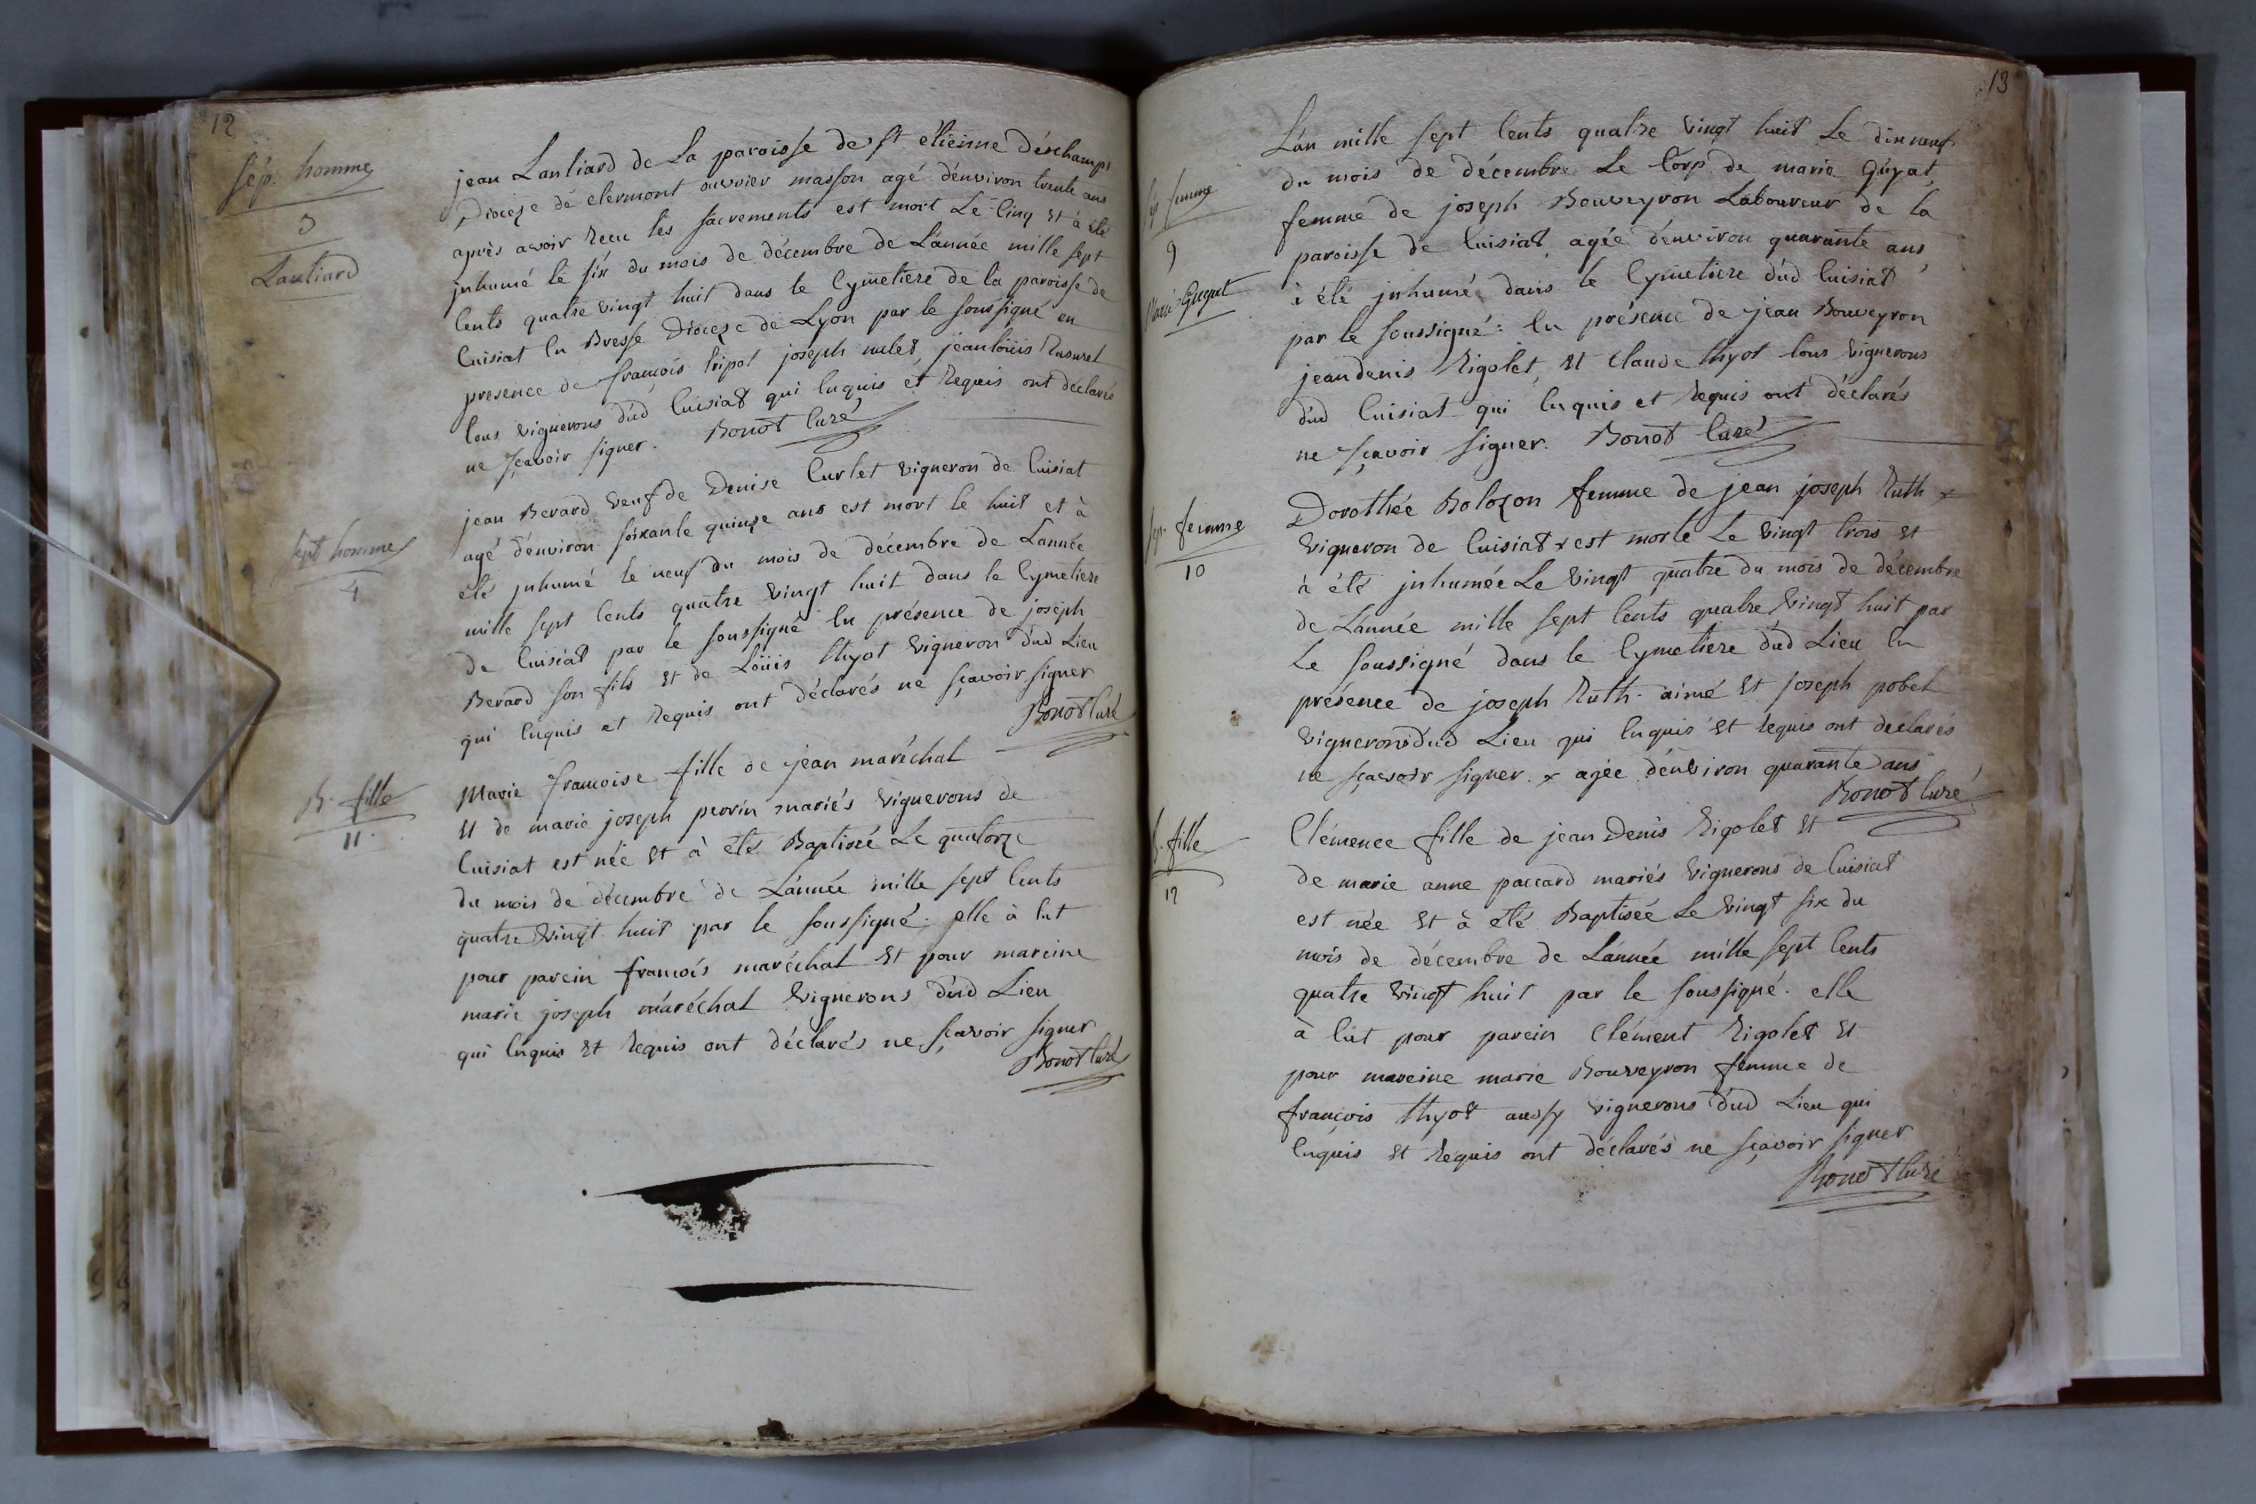 12
sép. homme
3
Lauliard
jean Lauliard de La paroisse de st étienne déschamps
Diocèze dé clermont ouvrier masson agé d'environ trente ans
après avoir Recu les sacrements est mort Le Cinq Et à été
jnhumé le six du mois de décembre de L'année mille sept
Cents quatre vingt huit dans le Cymetiere de la paroisse de
Cuisiat En Bresse Diocèze de Lyon par le soussigné en
presence de françois tripot joseph jeanloüis
tous vignerons dud Cuisiat qui Enquis et Requis ont déclarés
ne sçavoir signer. Bonot Curé
sept homme
4
jean Berard veuf de Denise Curlet vigneron de Cuisiat
agé d'environ soixante quinze ans est mort le huit et à
été jnhumé le neuf du mois de décembre de L'année
mille sept Cents quatre vingt huit dans le Cymetiere
de Cuisiat par le soussigné En présence de joseph
Berard son fils Et de Loüis thyot vigneron dud Lieu
qui Enquis et Requis ont déclarés ne sçavoir signer
Bonot Curé
B. fille
11.
Marie françoise fille de jean maréchal
Et de marie joseph perrin mariés vignerons de
Cuisiat est née Et à été Baptisée Le quatorze
du mois de décembre de L'année mille sept Cents
quatre vingt huit par le soussigné: elle à Eut
pour parein françois maréchal Et pour mareine
marie joseph maréchal vignerons dud Lieu
qui Enquis Et Requis ont déclarés ne sçavoir signer
Bonot Curé
13
L'an mille sept Cents quatre vingt huit Le dix neuf
du mois de décembre Le Corp de marie Guyat
femme de joseph Bouveyron Laboureur de la
paroisse de Cuisiat agée d'environ quarante ans
à été jnhumée dans le Cymetiere dud Cuisiat
par le soussigné: En présence de jean Bouveyron
jeandenis Rigolet, Et Claude thyot tous vignerons
dud Cuisiat qui Enquis et Requis ont déclarés
ne sçavoir signer. Bonot Curé
sep femme
9
Marie Guyat
sep. femme
10
Dorothée Bolozon femme de jean joseph Ruth x
vigneron de Cuisiat x est morte Le vingt trois Et
à été jnhumée Le vingt quatre du mois de décembre
de L'année mille sept Cents quatre vingt huit par
Le soussigné dans le Cymetiere dud Lieu En
présence de joseph Ruth. aimé Et joseph pobel
vignerons dud Lieu qui Enquis Et Requis ont déclarés
ne sçavoir signer. x agée d'environ quarante ans
Bonot Curé
b. fille
12
Clémence fille de jean Denis Rigolet Et
de marie anne paccard mariés vignerons de Cuisiat
est née Et à été Baptisée Le vingt six du
mois de décembre de L'année mille sept Cents
quatre vingt huit par le soussigné. elle
à Eut pour parein Clément Rigolet Et
pour mareine marie Bouveyron femme de
françois thyot aussy vignerons dud Lieu qui
Enquis Et Requis ont déclarés ne sçavoir signer
Bonot Curé